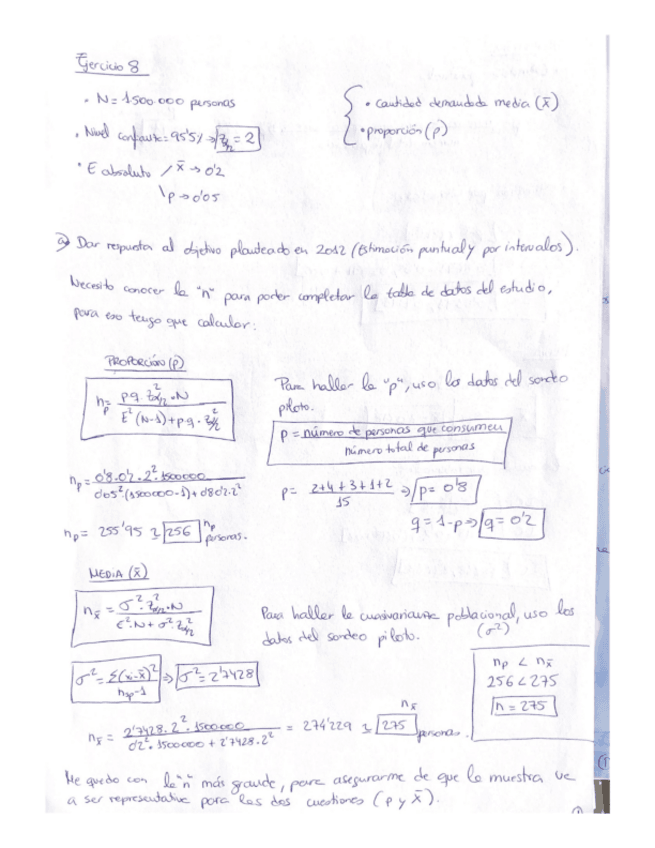 Ejercicio 8
• N = 1500.000 personas
• Nivel confianza = 95'5% → Zα/2 = 2
• E absoluto / x̄ → 0'2
\ p → 0'05
{ • cantidad demandada media (x̄)
• proporción (p)
a) Dar respuesta al objetivo planteado en 2012 (Estimación puntual y por intervalos).
Necesito conocer la "n" para poder completar la tabla de datos del estudio,
para eso tengo que calcular:
PROPORCIÓN (p)
n_p = p·q·Z²α/2·N / E²(N-1)+p·q·Z²α/2
Para hallar la "p", uso los datos del sondeo
piloto.
p = número de personas que consumen / número total de personas
n_p = 0'8·0'2·2²·1500000 / 0'05²(1500000-1)+0'8·0'2·2²
p = 2+4+3+1+2 / 15 ⇒ p = 0'8
q = 1-p ⇒ q = 0'2
n_p = 255'95 ≃ 256 n_p personas.
MEDIA (x̄)
n_x̄ = σ²·Z²α/2·N / E²·N+σ²·Z²α/2
Para hallar la cuasivarianza poblacional, uso los
(σ²)
datos del sondeo piloto.
σ² = Σ(x-x̄)² / n_sp-1 ⇒ σ² = 2'7428
n_p < n_x̄
256 < 275
n = 275
n_x̄ = 2'7428·2²·1500000 / 0'2²·1500000+2'7428·2² = 274'229 ≃ 275 n_x̄ personas.
Me quedo con la "n" más grande, para asegurarme de que la muestra va
a ser representativa para las dos cuestiones (p y x̄).
1